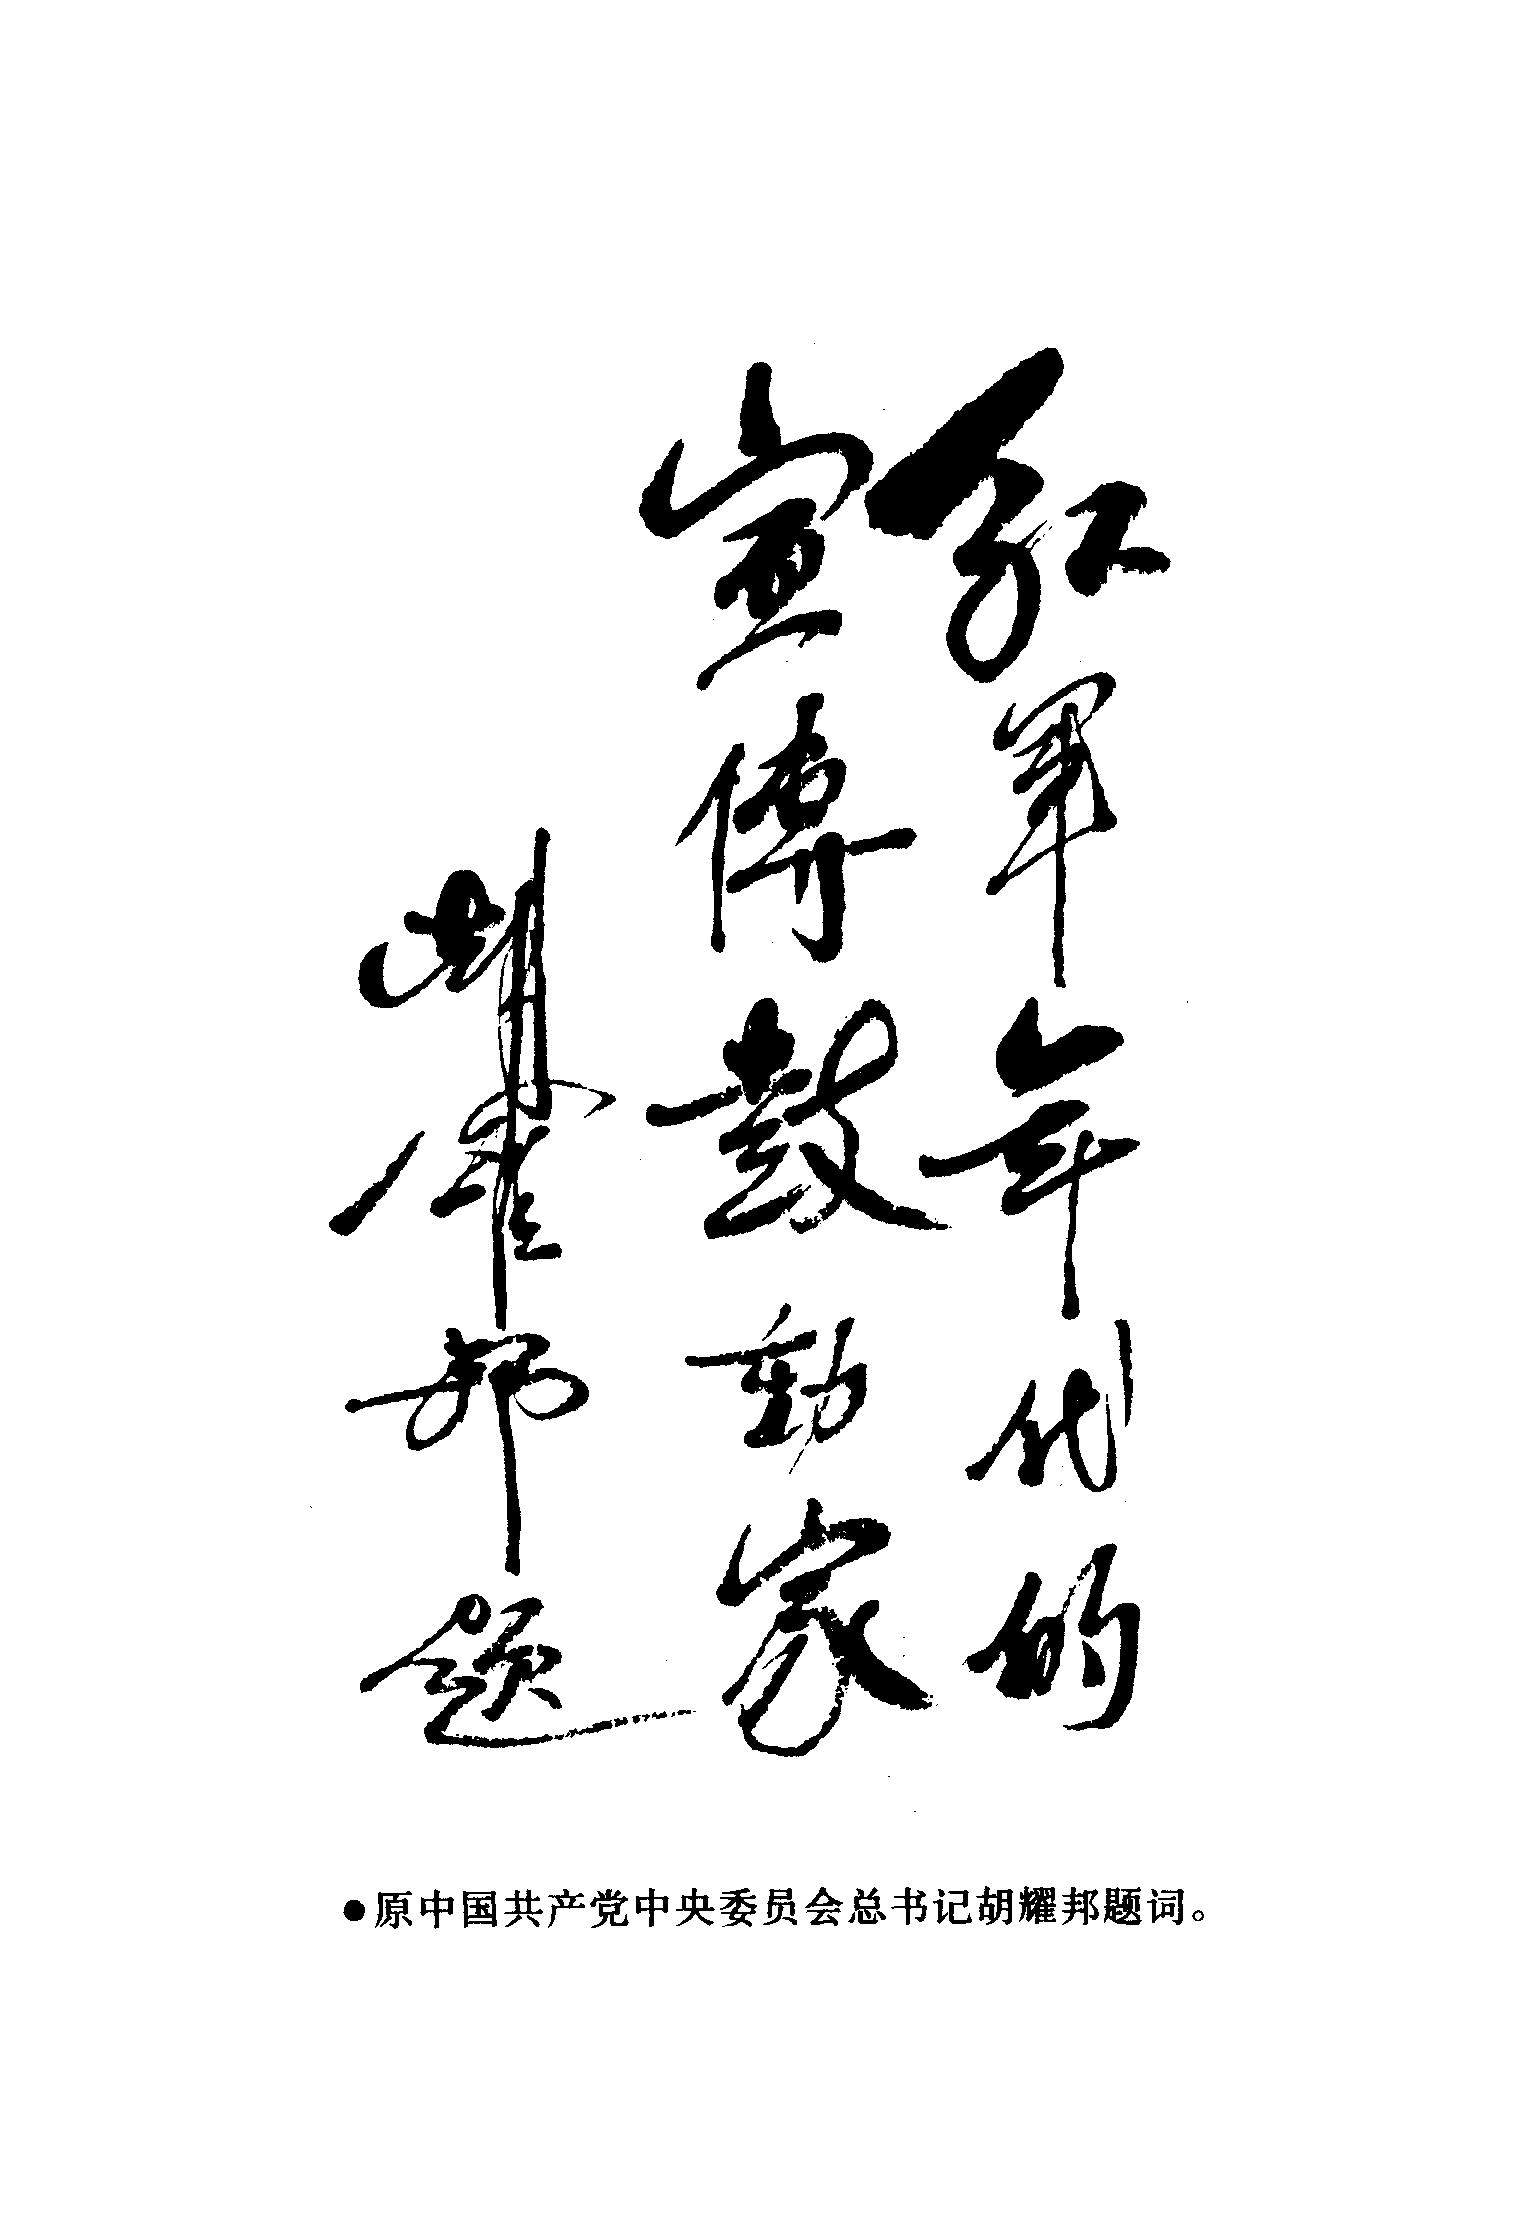 红军年代的
宣傳鼓動家
胡耀邦题
●原中国共产党中央委员会总书记胡耀邦题词。